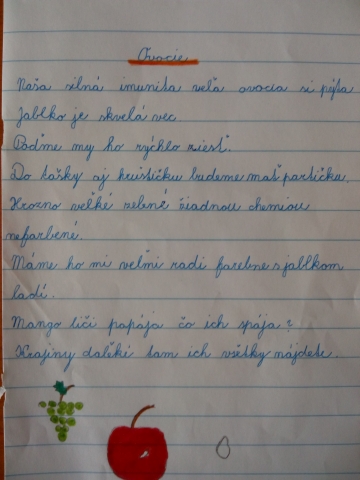 Ovocie
Naša silná imunita veľa ovocia si pýta
Jablko je skvelá vec
Poďme my ho rýchlo zjesť.
Do tašky aj hruštičku budeme mať partičku.
Hrozno veľké zelené žiadnou chemiou
nefarbené.
Máme ho mi veľmi radi farebne s jablkom
ladí.
Mango liči papája čo ich spája?
Krajiny daľeké tam ich všetky nájdete.